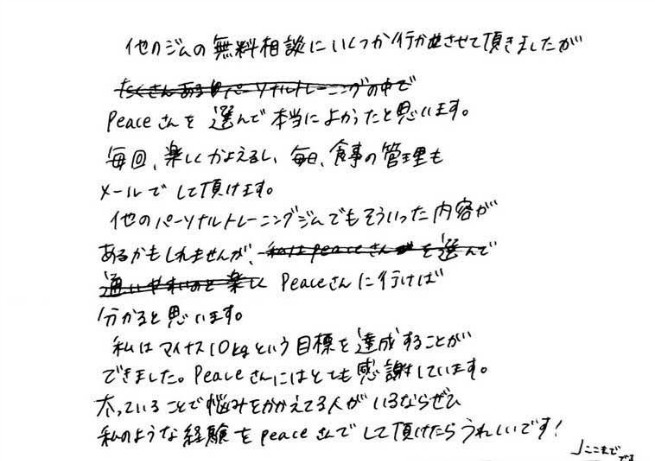 他のジムの無料相談にいくつか行かせて頂きましたが
たくさんあるパーソナルトレーニングの中で
Peaceさんを選んで本当によかったと思います。
毎回、楽しくかよえるし、毎日、食事の管理も
メールでして頂けます。
他のパーソナルトレーニングジムでもそういった内容が
あるかもしれませんが、私はpeaceさんを選んで
通いやすいのと楽しく Peaceさんに行けば
分かると思います。
私はマイナス10kgという目標を達成することが
できました。Peaceさんにはとても感謝しています。
太っていることで悩みをかかえてる人がいるならぜひ
私のような経験をpeaceさんでして頂けたらうれしいです!
ここまで
です